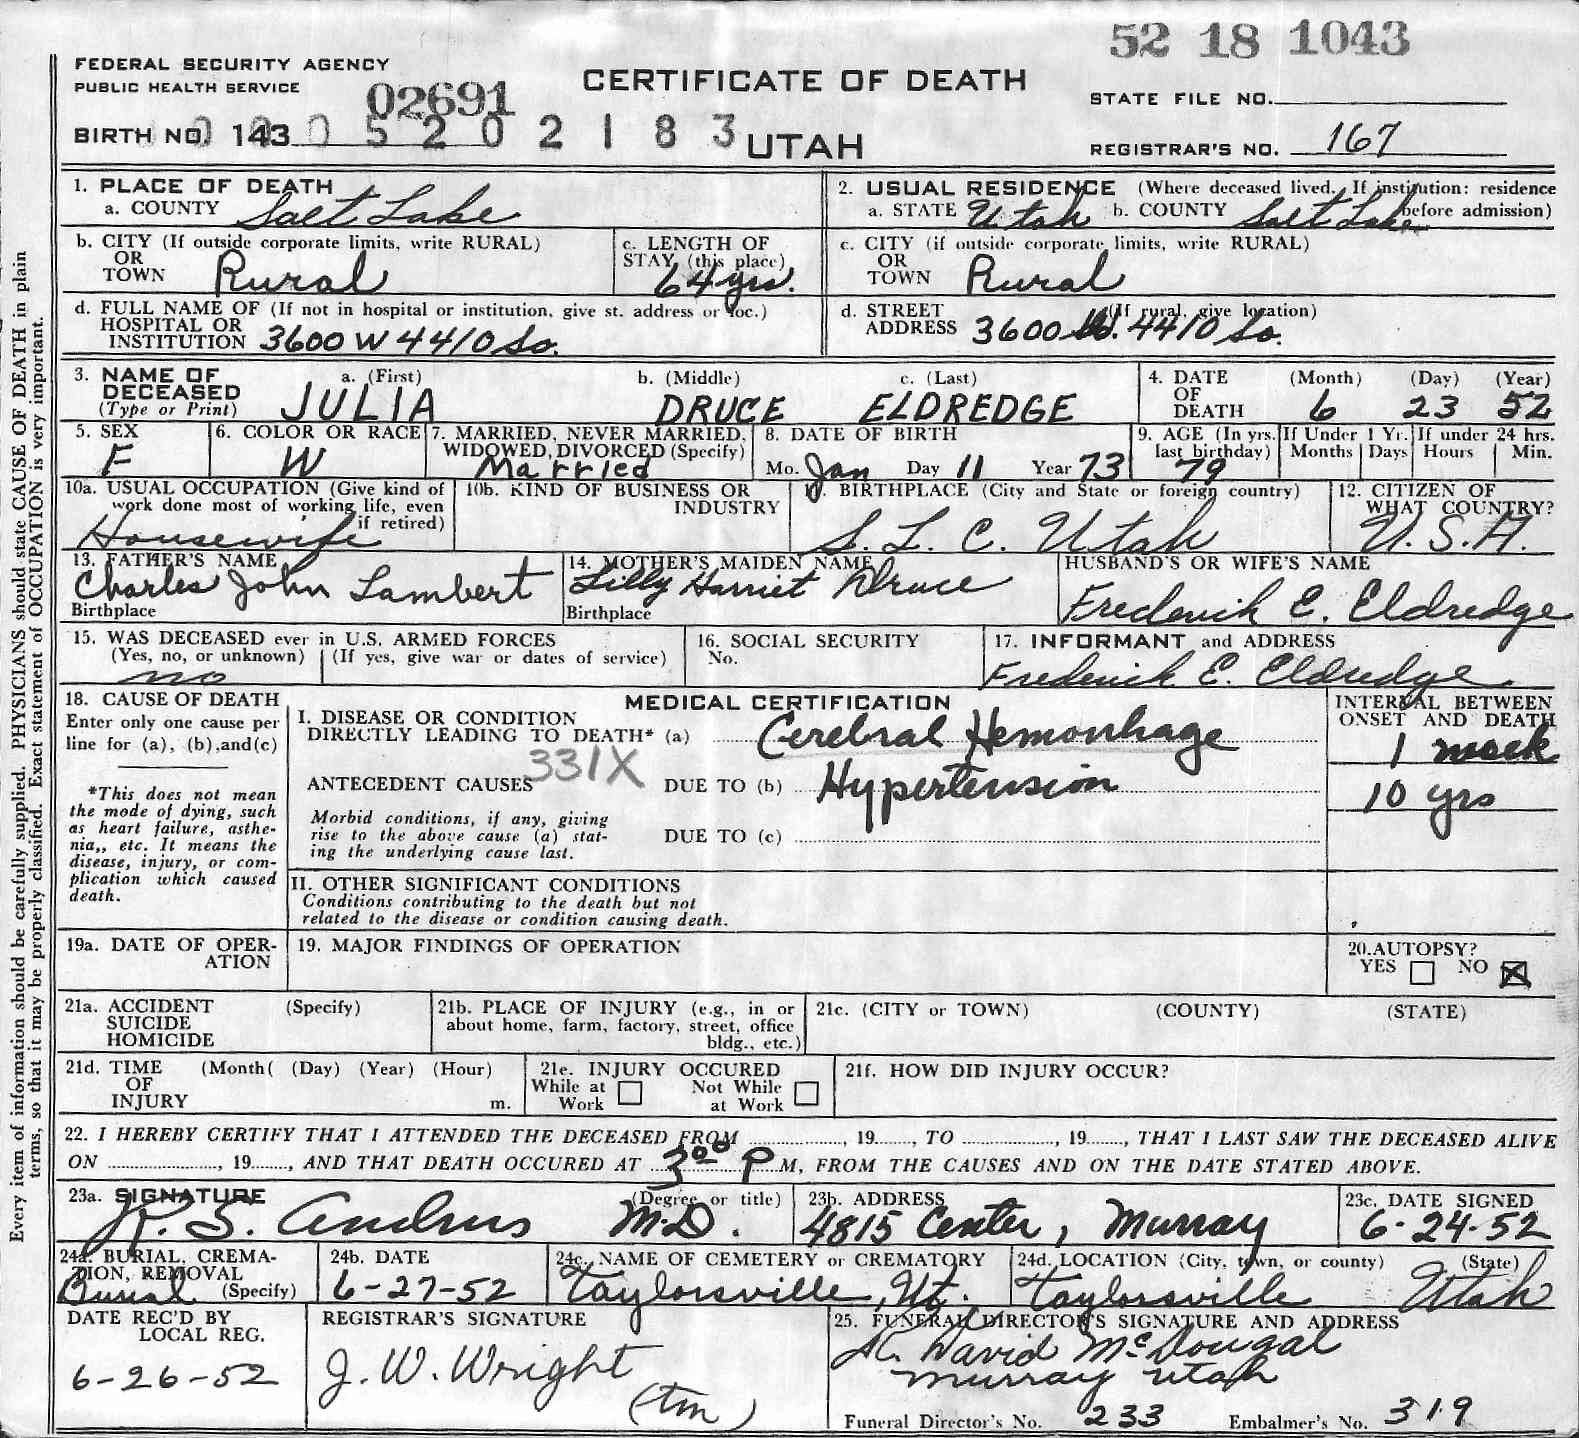 52 18 1043
FEDERAL SECURITY AGENCY
PUBLIC HEALTH SERVICE
02691
CERTIFICATE OF DEATH
STATE FILE NO.
BIRTH NO. 143
0 0 0 5 2 0 2 1 8 3
UTAH
REGISTRAR'S NO. 167
1. PLACE OF DEATH
a. COUNTY Salt Lake
2. USUAL RESIDENCE (Where deceased lived. If institution: residence before admission)
a. STATE Utah b. COUNTY Salt Lake
b. CITY (If outside corporate limits, write RURAL)
OR
TOWN Rural
c. LENGTH OF
STAY (this place)
64 yrs.
c. CITY (if outside corporate limits, write RURAL)
OR
TOWN Rural
d. FULL NAME OF (If not in hospital or institution, give st. address or loc.)
HOSPITAL OR
INSTITUTION 3600 W 4410 So.
d. STREET (If rural, give location)
ADDRESS 3600 W. 4410 So.
3. NAME OF
DECEASED
(Type or Print)
a. (First) b. (Middle) c. (Last)
JULIA DRUCE ELDREDGE
4. DATE
OF
DEATH
(Month) (Day) (Year)
6 23 52
5. SEX
F
6. COLOR OR RACE
W
7. MARRIED, NEVER MARRIED,
WIDOWED, DIVORCED (Specify)
Married
8. DATE OF BIRTH
Mo. Jan Day 11 Year 73
9. AGE (In yrs.
last birthday)
79
If Under 1 Yr.
Months Days
If under 24 hrs.
Hours Min.
10a. USUAL OCCUPATION (Give kind of
work done most of working life, even
if retired)
Housewife
10b. KIND OF BUSINESS OR
INDUSTRY
11. BIRTHPLACE (City and State or foreign country)
S. L. C. Utah
12. CITIZEN OF
WHAT COUNTRY?
U.S.A.
13. FATHER'S NAME
Charles John Lambert
Birthplace
14. MOTHER'S MAIDEN NAME
Lilly Harriet Druce
Birthplace
HUSBAND'S OR WIFE'S NAME
Frederick E. Eldredge
15. WAS DECEASED ever in U.S. ARMED FORCES
(Yes, no, or unknown) (If yes, give war or dates of service)
no
16. SOCIAL SECURITY
No.
17. INFORMANT and ADDRESS
Frederick E. Eldredge.
18. CAUSE OF DEATH
Enter only one cause per
line for (a), (b),and(c)
*This does not mean
the mode of dying, such
as heart failure, asthe-
nia,, etc. It means the
disease, injury, or com-
plication which caused
death.
MEDICAL CERTIFICATION
I. DISEASE OR CONDITION
DIRECTLY LEADING TO DEATH* (a) Cerebral Hemorrhage
331X
ANTECEDENT CAUSES DUE TO (b) Hypertension
Morbid conditions, if any, giving
rise to the above cause (a) stat-
ing the underlying cause last.
DUE TO (c)
INTERVAL BETWEEN
ONSET AND DEATH
1 week
10 yrs
II. OTHER SIGNIFICANT CONDITIONS
Conditions contributing to the death but not
related to the disease or condition causing death.
19a. DATE OF OPER-
ATION
19. MAJOR FINDINGS OF OPERATION
20. AUTOPSY?
YES NO X
21a. ACCIDENT (Specify)
SUICIDE
HOMICIDE
21b. PLACE OF INJURY (e.g., in or
about home, farm, factory, street, office
bldg., etc.)
21c. (CITY or TOWN) (COUNTY) (STATE)
21d. TIME (Month( (Day) (Year) (Hour)
OF
INJURY m.
21e. INJURY OCCURED
While at Not While
Work at Work
21f. HOW DID INJURY OCCUR?
22. I HEREBY CERTIFY THAT I ATTENDED THE DECEASED FROM , 19 , TO , 19 , THAT I LAST SAW THE DECEASED ALIVE
ON , 19 , AND THAT DEATH OCCURED AT 3 00 P M, FROM THE CAUSES AND ON THE DATE STATED ABOVE.
23a. SIGNATURE (Degree or title)
R. S. Andrus M.D.
23b. ADDRESS
4815 Center, Murray
23c. DATE SIGNED
6-24-52
24a. BURIAL, CREMA-
TION, REMOVAL
Burial (Specify)
24b. DATE
6-27-52
24c. NAME OF CEMETERY or CREMATORY
Taylorsville, Ut.
24d. LOCATION (City, town, or county) (State)
Taylorsville Utah
DATE REC'D BY
LOCAL REG.
6-26-52
REGISTRAR'S SIGNATURE
J. W. Wright
(tm)
25. FUNERAL DIRECTOR'S SIGNATURE AND ADDRESS
David McDougal
Murray Utah
Funeral Director's No. 233 Embalmer's No. 319
Every item of information should be carefully supplied. PHYSICIANS should state CAUSE OF DEATH in plain
terms, so that it may be properly classified. Exact statement of OCCUPATION is very important.